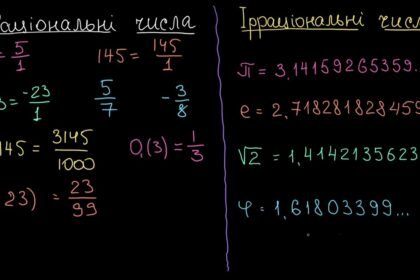 аціональні числа
= 5/1 145 = 145/1
= -23/1 5/7 -3/8
145 = 3145/1000 0,(3) = 1/3
23) = 23/99
Ірраціональні числ
π = 3,14159265359...
e = 2,71828182845
√2 = 1,4142135623
φ = 1,61803399...